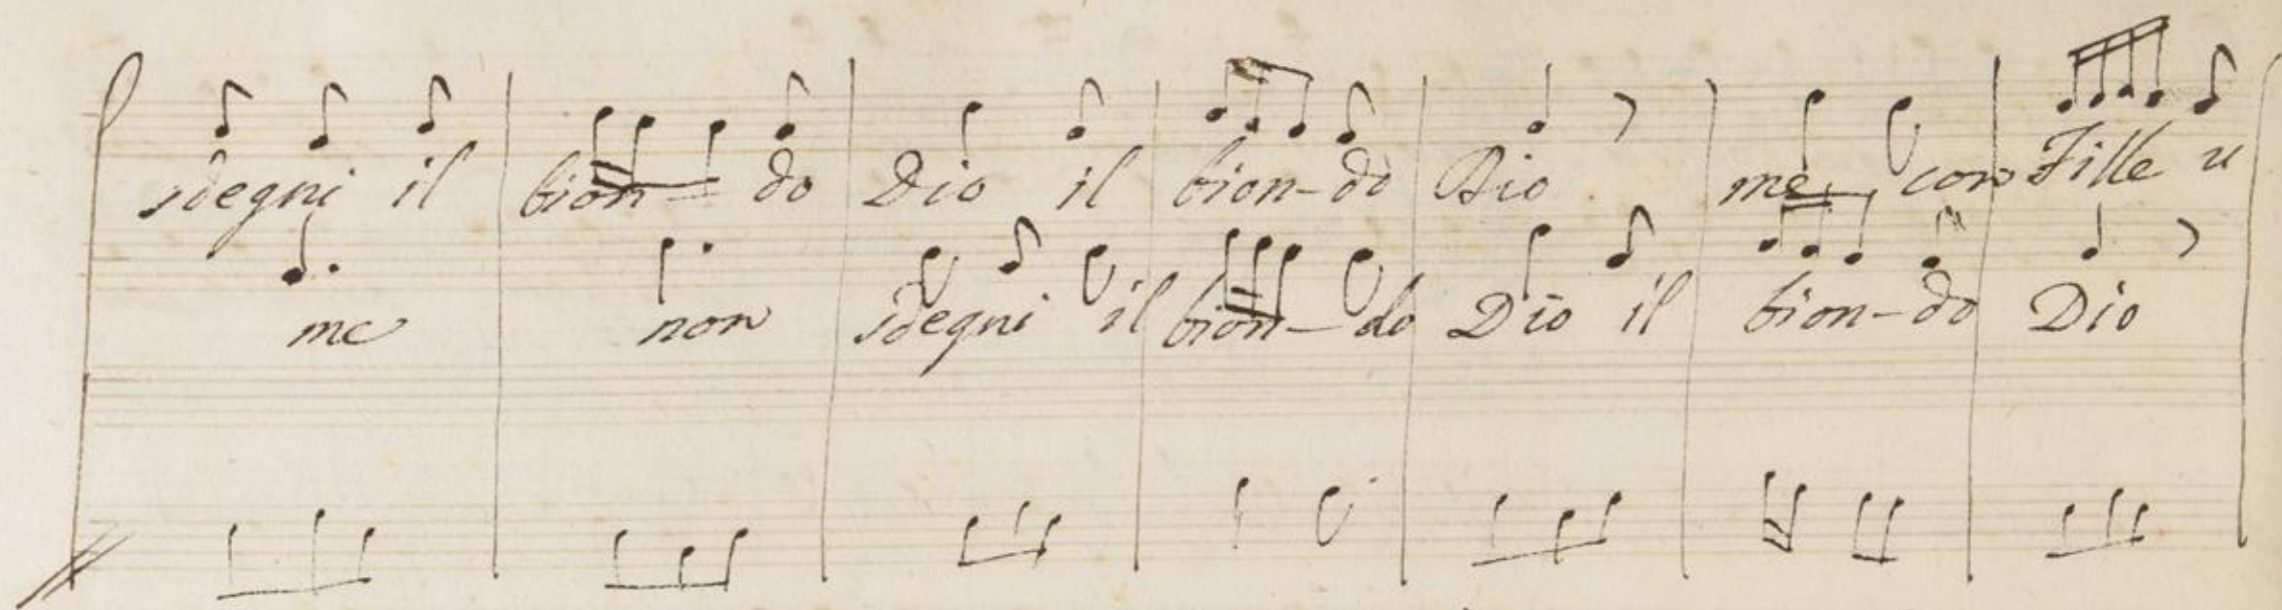 sdegni il bion- do Dio il bion-do Dio me con Fille u
me non sdegni il bion-do Dio il bion-do Dio